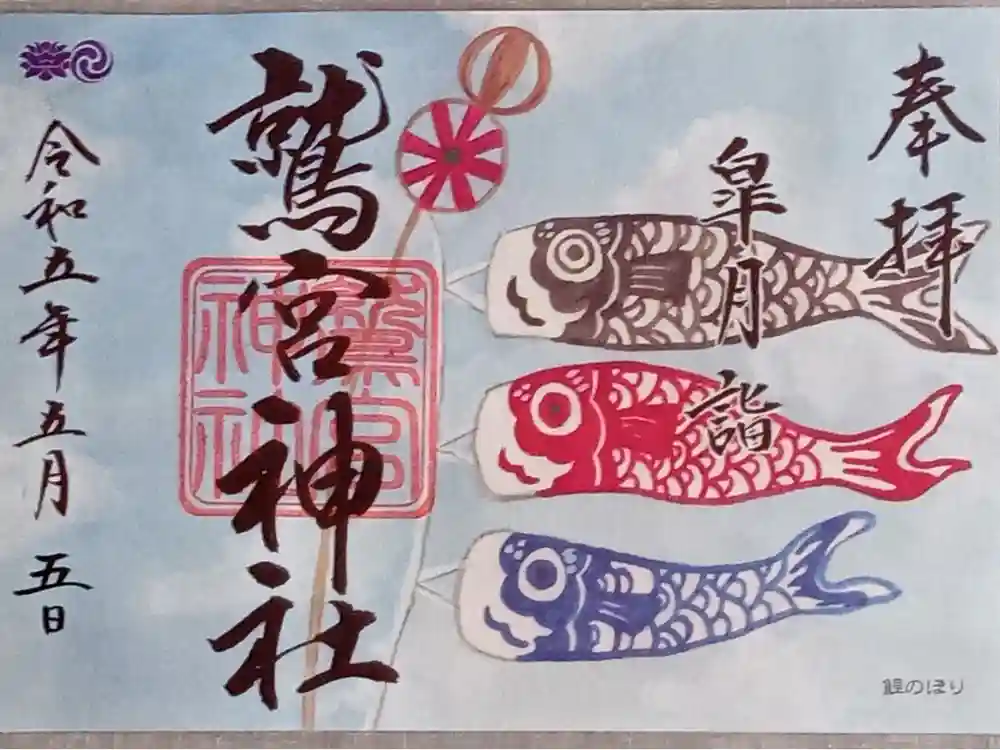 奉拝
皐月
詣
鷲宮神社
鷲宮
神社
令和五年五月五日
鯉のぼり